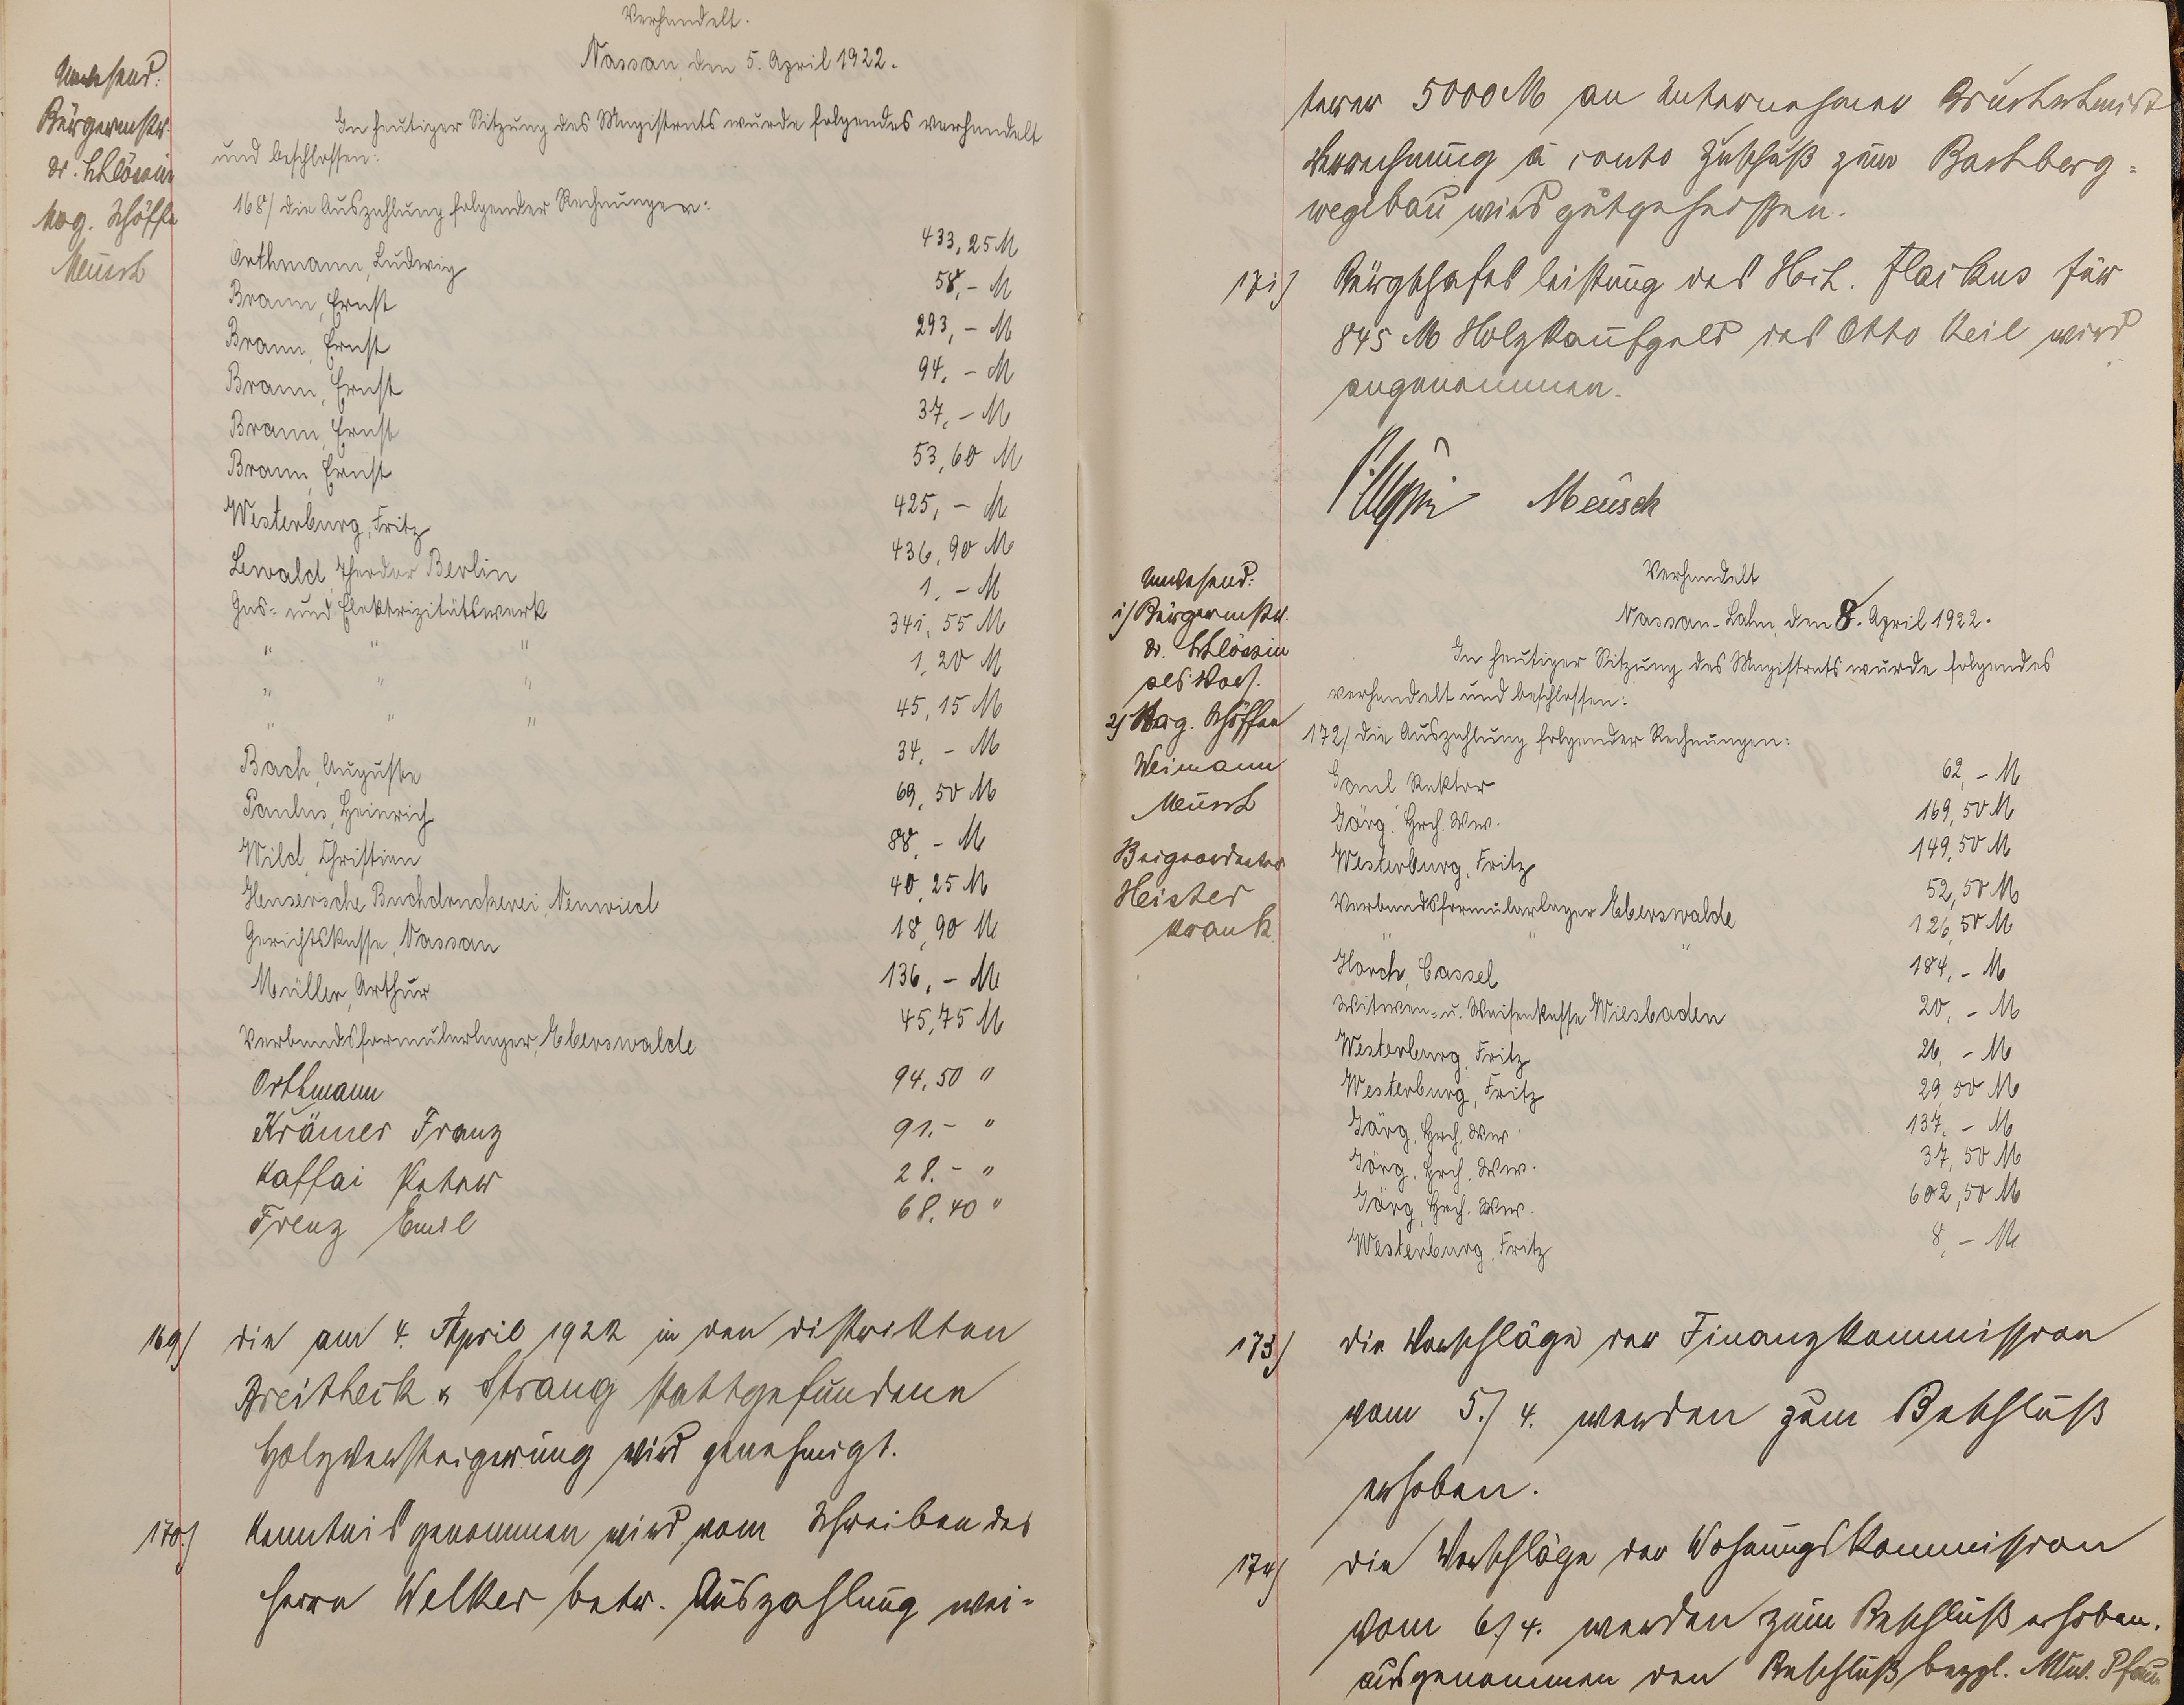 Verhandelt.
Nassau, den 5. April 1922.
Anwesend:
Bürgermstr.
Dr. Schlössin
Mag. Schöffe
Meusch
In heutiger Sitzung des Magistrats wurde folgendes verhandelt
und beschlossen:
168/ die Auszahlung folgender Rechnungen:
Orthmann, Ludwig 433,25 M
Braun, Ernst 58,- M
Braun, Ernst 293,- M
Braun, Ernst 94,- M
Braun, Ernst 37,- M
Braun, Ernst 53,60 M
Westerburg, Fritz 425,- M
Lewald, Theodor Berlin 436,90 M
Gas- und Elektrizitätswerk 1,- M
" " " 341,55 M
" " " 1,20 M
" " " 45,15 M
Bach, Auguste 34,- M
Paulus, Heinrich 69,50 M
Wild, Christian 88,- M
Heusersche Buchdruckerei, Neuwied 40,25 M
Gerichtskasse, Nassau 18,90 M
Müller, Arthur 136,- M
Verbandsformularlager, Eberswalde 45,75 M
Orthmann 94.50 "
Krämer Franz 91.- "
Kaffai Peter 28.- "
Frenz Emil 68.40 "
169) die am 4. April 1922 in den Distrikten
Breitheck & Strang stattgefundene
Holzversteigerung wird genehmigt.
170) Kenntnis genommen wird vom Schreiben des
Herrn Welker betr. Auszahlung wei-
terer 5000 M an Unternehmer
Verrechnung à conto Zuschuß zum Bachberg-
wegebau wird gutgeheissen.
171) Bürgschaftsleistung des Hch. Flackus für
845 M Holzkaufgeld des Otto Keil wird
angenommen.
Meusch
Verhandelt
Nassau-Lahn, den 8. April 1922.
Anwesend:
1) Bürgermstr.
Dr. Schlössin
als Vors.
2) Mag. Schöffen
Weimann
Meusch
Beigeordneter
Heister
krank.
In heutiger Sitzung des Magistrats wurde folgendes
verhandelt und beschlossen:
172/ die Auszahlung folgender Rechnungen:
Rektor 62,- M
Görg, Hrch. Ww. 169,50 M
Westerburg, Fritz 149,50 M
Verbandsformularlager Eberswalde 52,50 M
" " " 126,50 M
Horch, Cassel 184,- M
Witwen- u. Waisenkasse Wiesbaden 20,- M
Westerburg, Fritz 26,- M
Westerburg, Fritz 29,50 M
Görg, Hrch. Ww. 137,- M
Görg, Hrch. Ww. 37,50 M
Görg, Hrch. Ww. 602,50 M
Westerburg, Fritz 8,- M
173) die Vorschläge der Finanzkommission
vom 5./4. werden zum Beschluß
erhoben.
174) die Vorschläge der Wohnungskommission
vom 6./4. werden zum Beschluß erhoben.
ausgenommen den Beschluß bezgl. Pfau